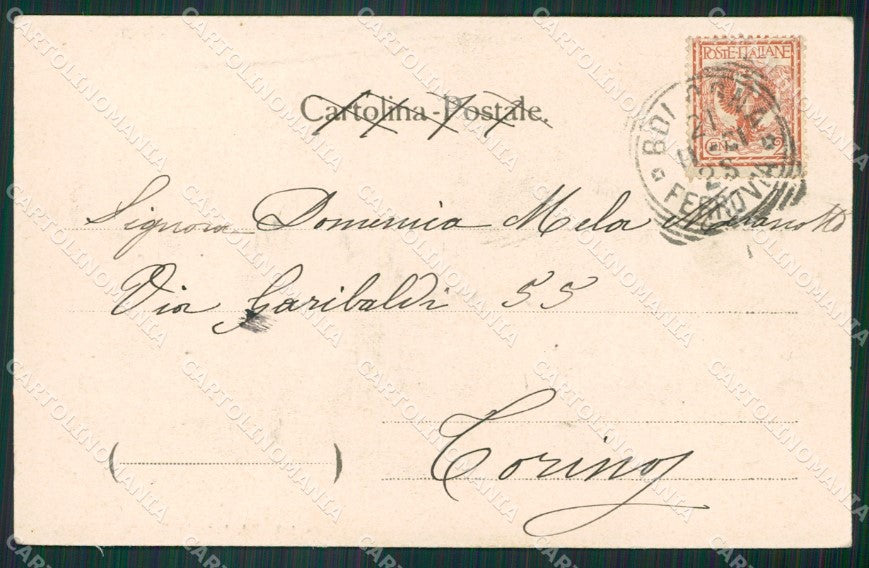 Cartolina Postale.
POSTE ITALIANE
BOLOGNA
21
FERROVIA
Signora Domenica Mela
Via Garibaldi 55
Torino
CARTOLINOMANIA